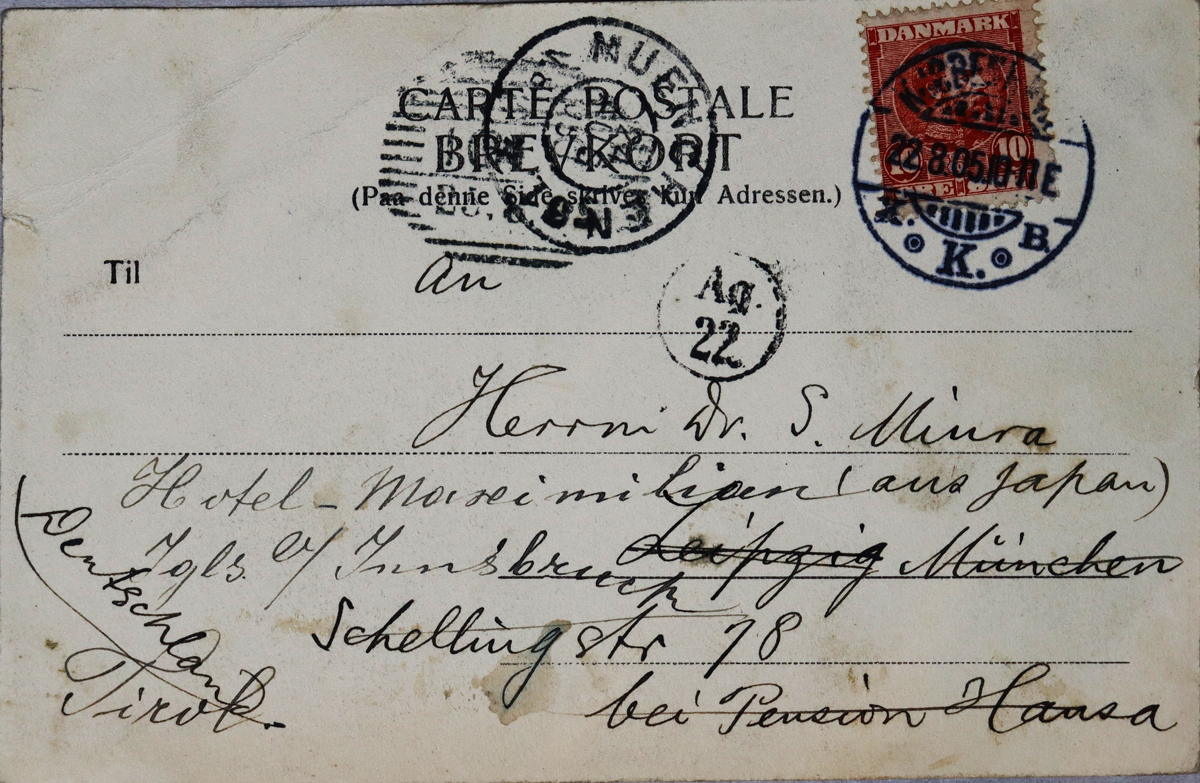 DANMARK
10 10
ØRE
KJØBENHAVN
22.8.05.10-11E
K. K. B.
MUENCHEN
CARTE POSTALE
BREVKORT
(Paa denne Side skrives kun Adressen.)
Til
An
Ag.
22
Herrn Dr. S. Miura
Hotel-Maximilian (aus Japan)
Igls a/ Innsbruck Leipzig München
Deutschland
Schellingstr 78
Tirol.
bei Pension Hansa